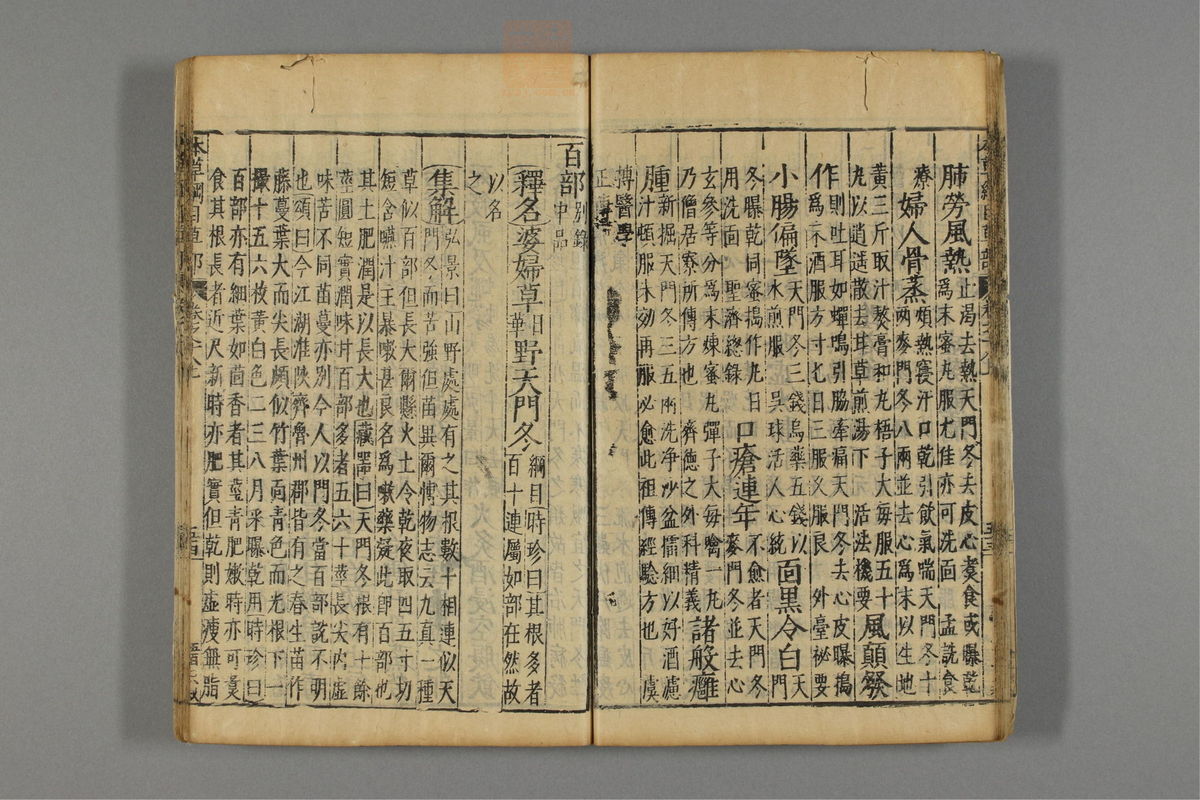 肺勞風熱止渴去熱天門冬去皮心煑食或曝乾
爲末蜜丸服尤佳亦可洗面 孟詵食
療 婦人骨蒸煩熱寢汗口乾引飲氣喘天門冬十
兩麥門冬八兩並去心爲末以生地
黃三斤取汁熬膏和丸梧子大每服五十
丸以逍遥散去甘草煎湯下 活法機要 風顛發
作則吐耳如蟬鳴引脇牽痛天門冬去心皮曝搗
爲末酒服方寸匕日三服久服良 外臺秘要
小腸偏墜天門冬三錢烏藥五錢以
水煎服 吳球活人心統 面黒令白天門
冬曝乾同蜜搗作丸日
用洗面 聖濟總錄 口瘡連年不愈者天門冬
麥門冬並去心
玄參等分爲末煉蜜丸彈子大每噙一丸
乃僧居寮所傳方也 齊德之外科精義 諸般癰
腫新掘天門冬三五兩洗淨沙盆擂細以好酒濾
汁頓服未効再服必愈此祖傳經驗方也 虞
摶醫學
正傳
百部別錄
中品
釋名婆婦草日華野天門冬綱目時珍曰其根多者
百十連屬如部在然故
以名
之
集解弘景曰山野處處有之其根數十相連似天
門冬而苦強但苗異爾博物志云九真一種
草似百部但長大爾懸火上令乾夜取四五寸切
短含嚥汁主暴嗽甚良名爲嗽藥疑此即百部也
其土肥潤是以長大也藏器曰天門冬根有十餘
莖圓短實潤味甘百部多者五六十莖長尖内虚
味苦不同苗蔓亦別今人以門冬當百部說不明
也頌曰今江湖淮陜齊魯州郡皆有之春生苗作
藤蔓葉大而尖長頗似竹葉面青色而光根下一
撮十五六枚黃白色二三八月采曝乾用時珍曰
百部亦有細葉如茴香者其莖青肥嫩時亦可煑
食其根長者近尺新時亦肥實但乾則虚瘦無脂
本草綱目草部